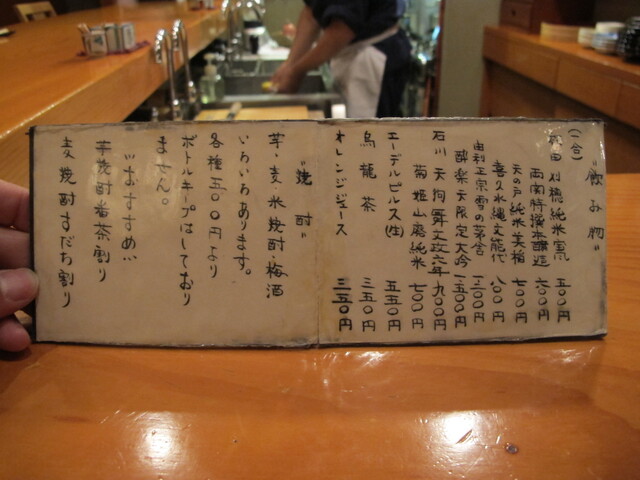 "飲み物"
(一合)
秋田 刈穂純米 五〇〇円
両関特撰米醸造 六〇〇円
天の戸純米美稲 七〇〇円
喜久水縄文能代 八〇〇円
由利正宗雪の茅舎 一二〇〇円
酔楽天限定大吟 一五〇〇円
石川 天狗舞文政六年 九〇〇円
菊姫山廃純米 七〇〇円
エーデルピルス(生) 五五〇円
烏龍茶 三五〇円
オレンジジュース 三五〇円
"焼酎"
芋・麦・米焼酎・梅酒
いろいろあります。
各種五〇〇円より
ボトルキープはしており
ません。
"おすすめ"
芋焼酎番茶割り
麦焼酎すだち割り